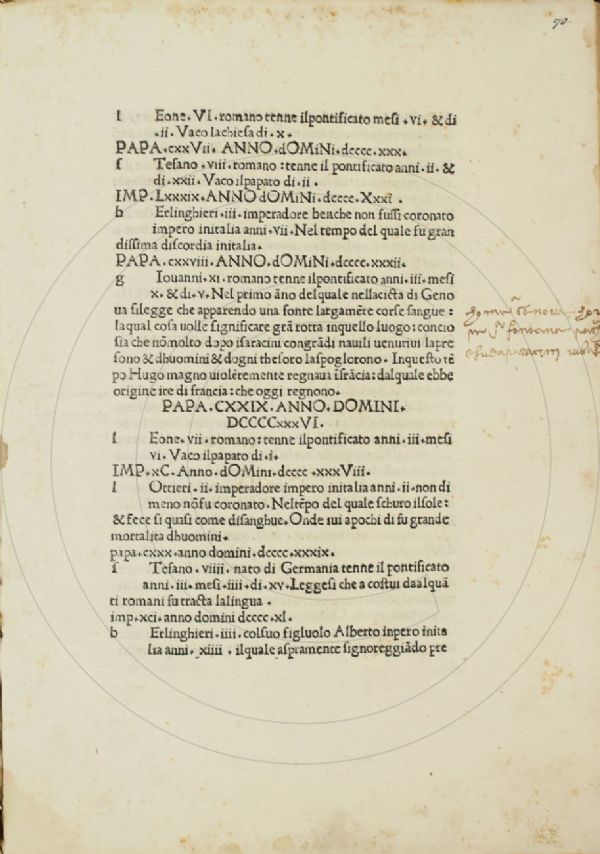 70
l Eone. VI. romano tenne ilpontificato mesi .vi. & di
.ii. Vaco lachiesa di .x.
PAPA.cxxVii ANNO.dOMiNi.dcccc.xxx.
s Tefano .viii. romano: tenne il pontificato anni .ii. &
di.xxii. Vaco ilpapato di .ii.
IMP.Lxxxix.ANNO dOMiNi.dcccc.Xxxi.
b Erlinghieri .iii. imperadore benche non fussi coronato
impero initalia anni .vii. Nel tempo del quale fu gran
dissima discordia initalia.
PAPA.cxxviii.ANNO.dOMiNi.dcccc.xxxii.
g Iouanni.xi.romano tenne ilpontificato anni.iii.mesi
x.&di.v.Nel primo āno delquale nellacicta di Geno
ua silegge che apparendo una fonte largamēte corse sangue:
laqual cosa uolle significare grā rotta inquello luogo: concio
sia che nōmolto dopo isaracini congrādi nauili uenutiui lapre
sono & dhuomini & dogni thesoro laspoglorono. Inquesto tē
po Hugo magno uiolētemente regnaua ifrācia: dalquale ebbe
origine ire di francia: che oggi regnono.
PAPA.CXXIX.ANNO.DOMINI.
DCCCCxxxVI.
l Eone.vii.romano:tenne ilpontificato anni.iii.mesi
vi. Vaco ilpapato di.i.
IMP.xC.Anno.dOMini.dcccc.xxxViii.
l Ottieri.ii.imperadore impero initalia anni.ii.non di
meno nōfu coronato. Neltēpo del quale scuro ilsole:
& fece si quasi come disanghue. Onde iui apochi di fu grande
mortalita dhuomini.
papa.cxxx.anno domini.dcccc.xxxix.
s Tefano.viiii.nato di Germania tenne il pontificato
anni.iii.mesi.iiii.di.xv.Leggesi che a costui daalquā
ti romani fu tracta lalingua.
imp.xci.anno domini dcccc.xl.
b Erlinghieri.iiii.colsuo figluolo Alberto inpero inita
lia anni.xiiii.ilquale aspramente signoreggiādo pre